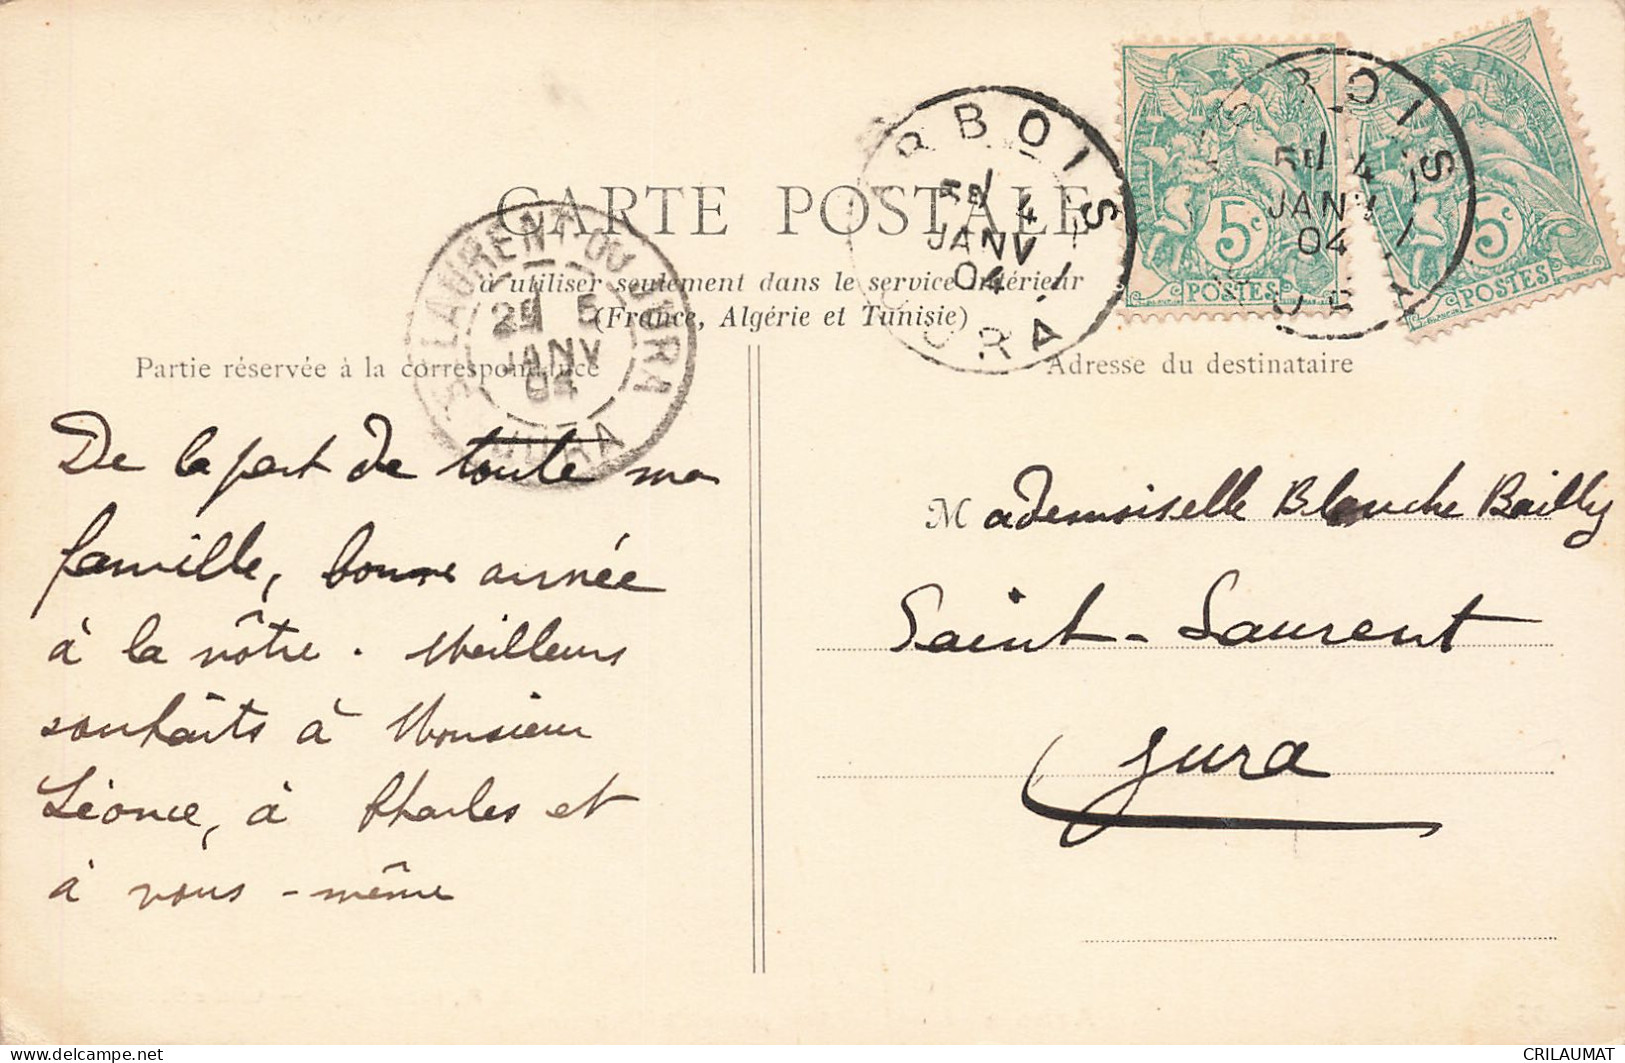 CARTE POSTALE
à utiliser seulement dans le service intérieur
(France, Algérie et Tunisie)
Partie réservée à la correspondance
Adresse du destinataire
ARBOIS
5E / 4
JANV
04
JURA
ARBOIS
5E / 4
JANV
04
JURA
ST LAURENT-DU-JURA
2E / 5
JANV
04
JURA
5c
POSTES
5c
POSTES
De la part de toute ma
famille, bonne année
à la nôtre. Meilleurs
souhaits à Monsieur
Léonce, à Charles et
à vous-même
Mademoiselle Blanche Bailly
Saint-Laurent
Jura
CRILAUMAT